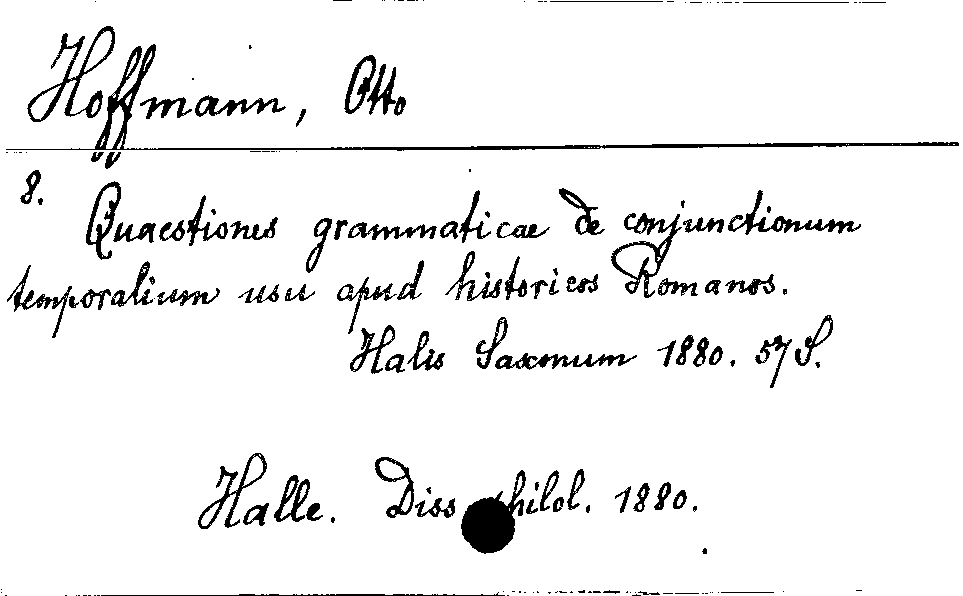 Hoffmann, Otto
8.
Quaestiones grammaticae de conjunctionum
temporalium usu apud historicos Romanos.
Halis Saxonum 1880. 57 S.
Halle. Diss. philol. 1880.